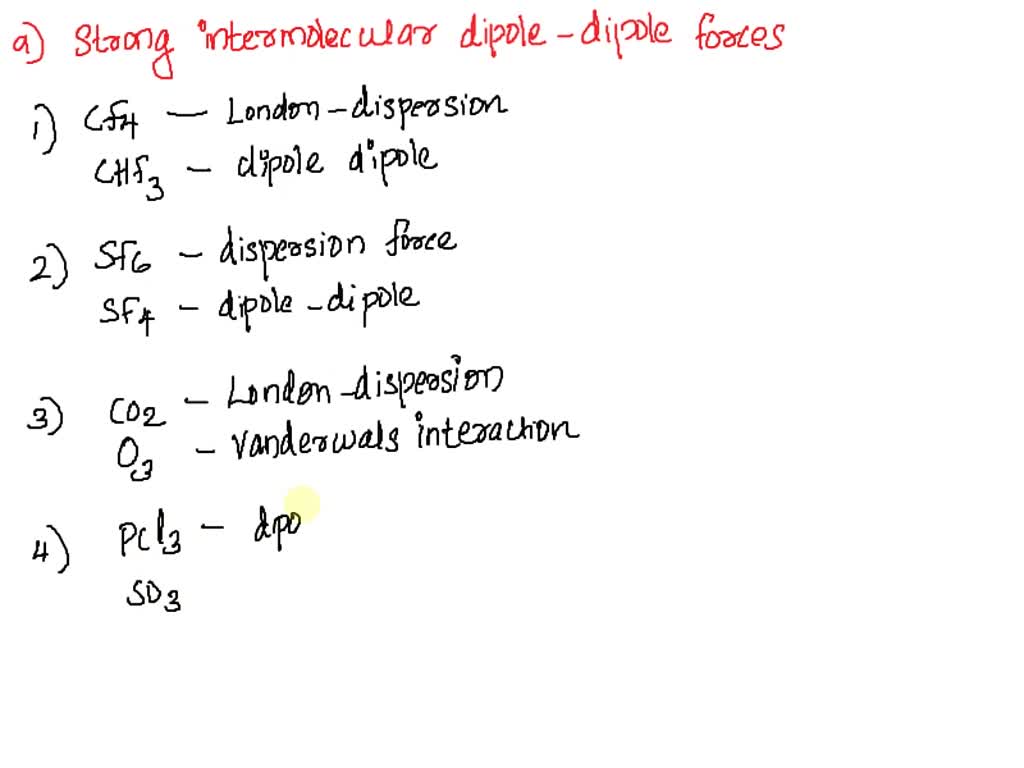 a) Strong intermolecular dipole-dipole forces
1) CF4 — London-dispersion
CHF3 - dipole dipole
2) SF6 - dispersion force
SF4 - dipole-dipole
3) CO2 - London-dispersion
O3 - Vanderwals interaction
4) PCl3 - dpo
SO3